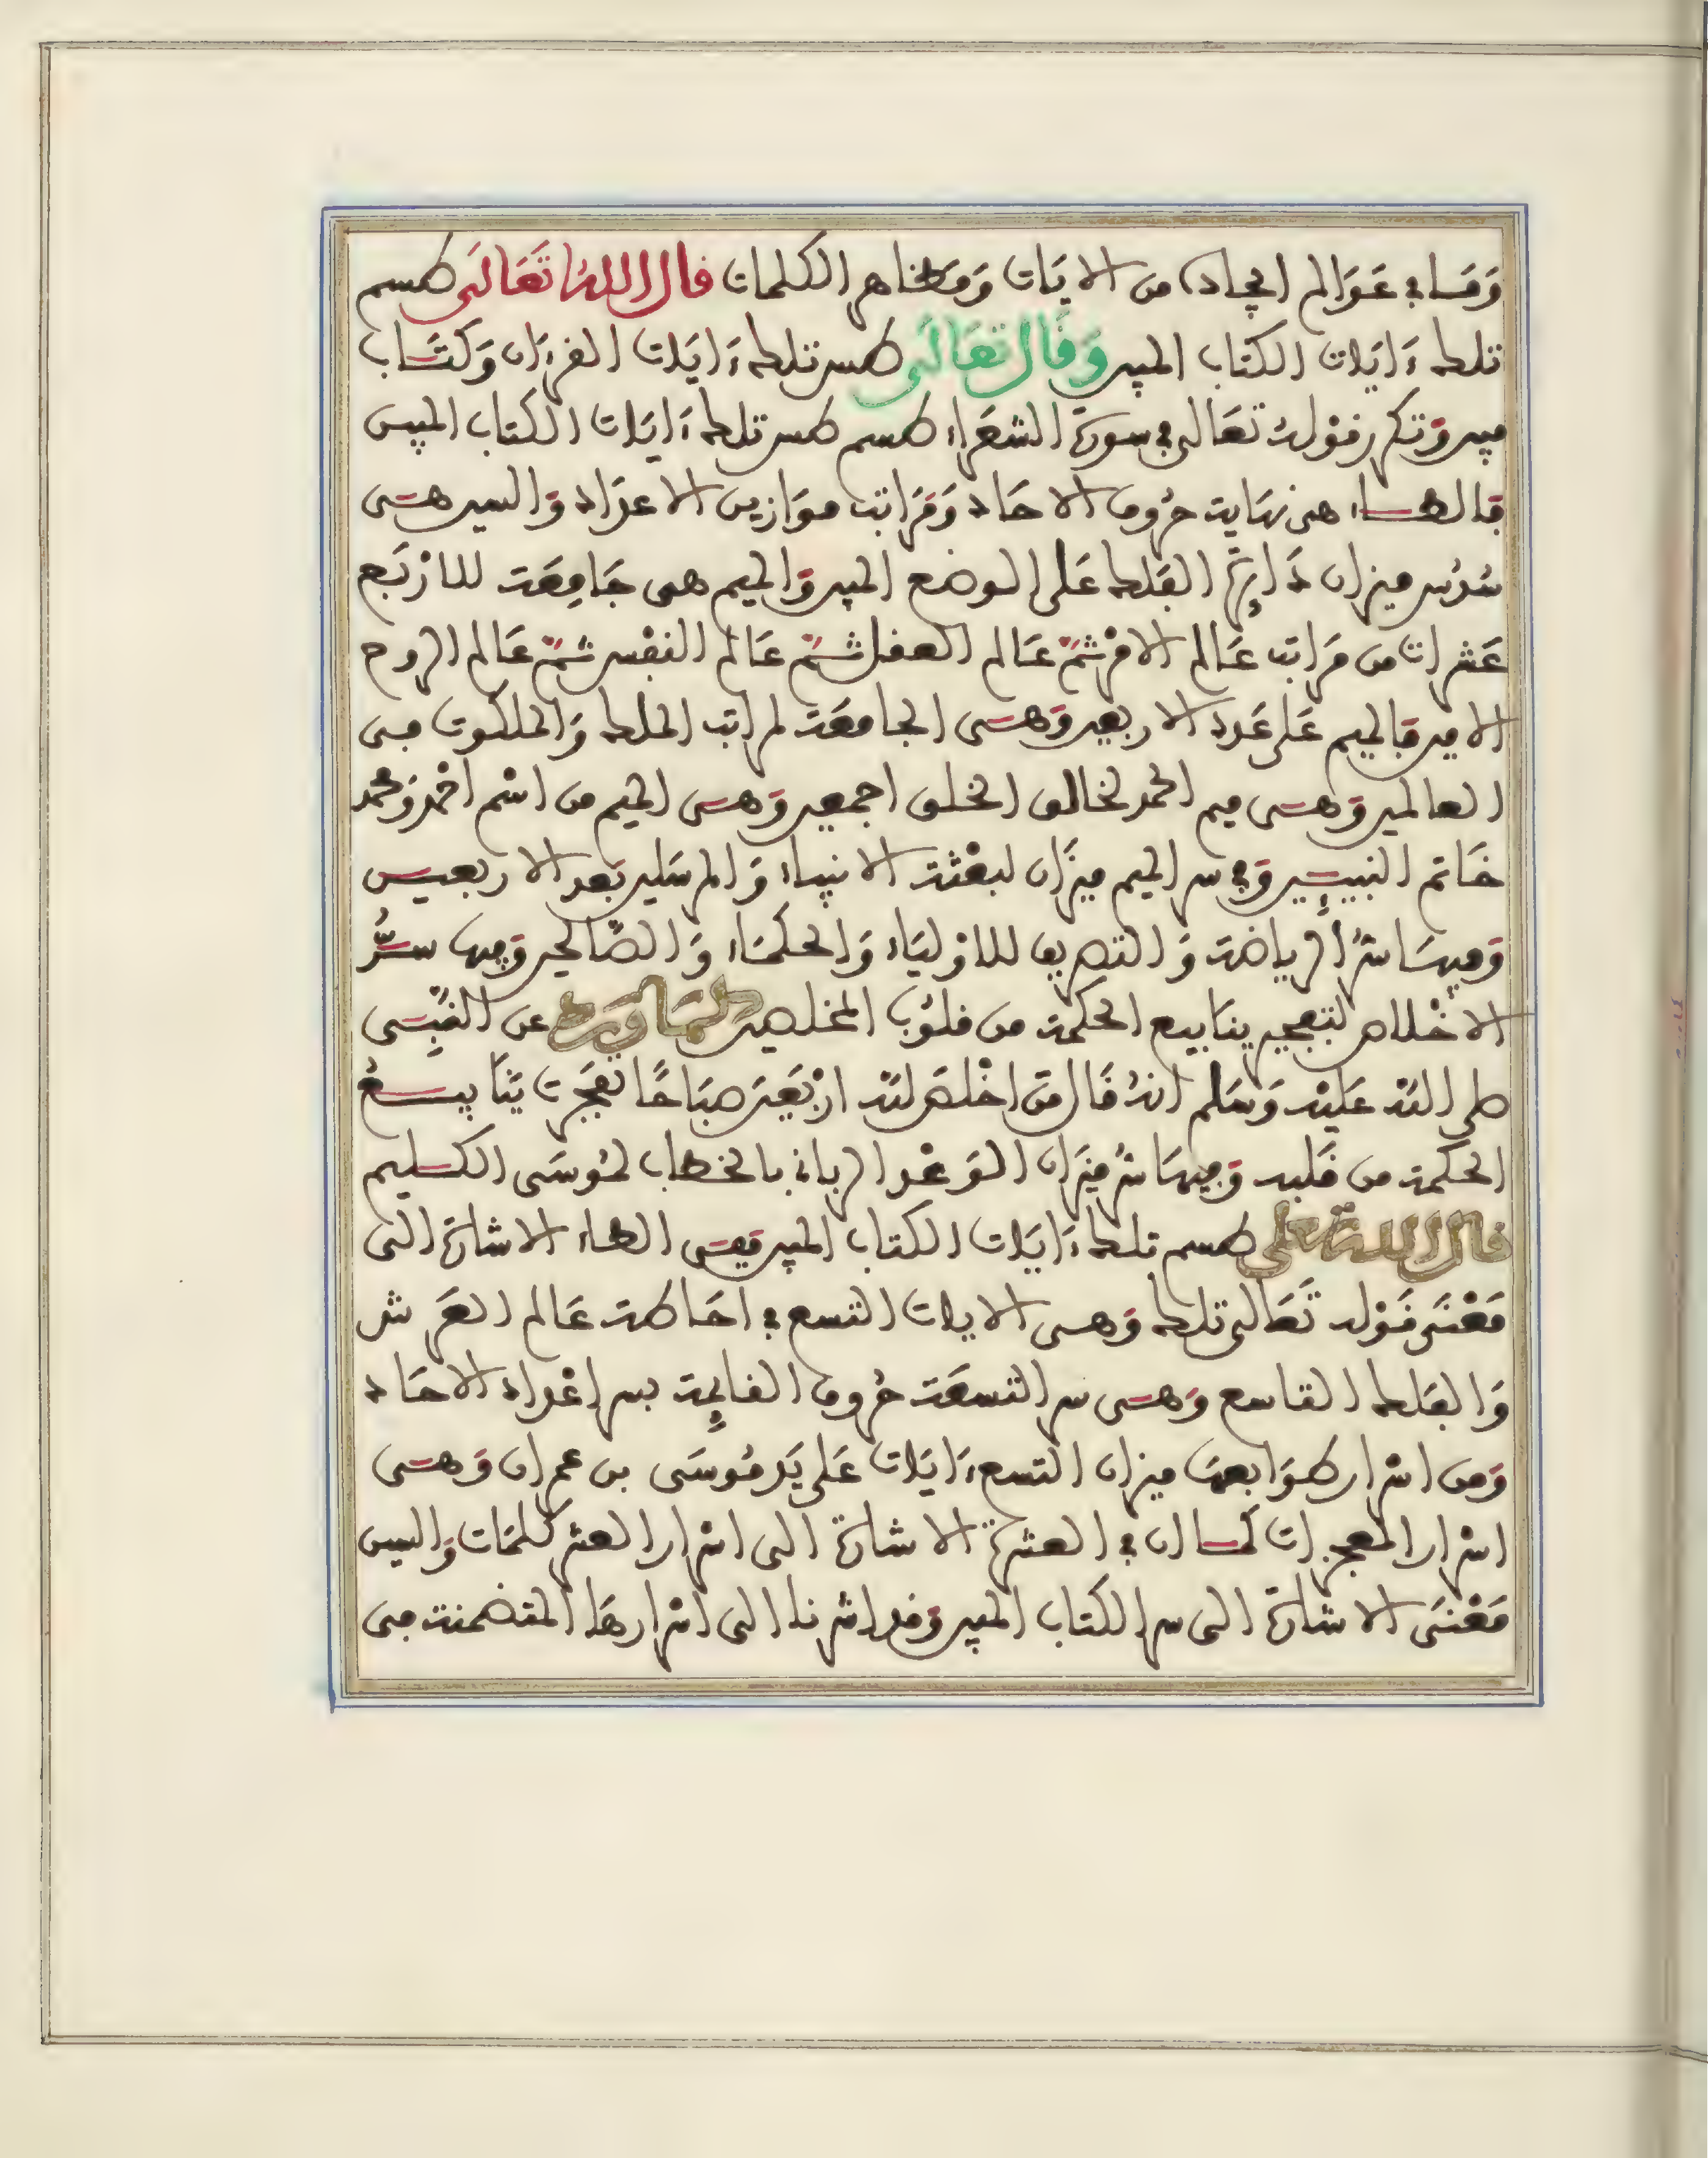 وَمَا في عَوَالم الجهاد من الايَات وَمَظاهر الكلمات قال اللهُ تَعَالَى طسم
تلك ءَايَات الكتاب المبين وَقَال تعَالَى طس تلك ءَايَات القرءان وَكتَاب
مبين وَتكرر قوْلهُ تعَالى في سورة الشعَراء طسم طس تلك ءَايَات الكتاب المبين
فالطاء هي نهَاية حُروف الاحَاد وَمَرَاتب موَازين الاعدَاد وَالسين هي
سُدُس ميزان دَائِرة الفَلك عَلى الوضع المبين وَالميم هي جَامِعَة للازْبَع
عَشرات من مَرَاتب عَالم الامْر ثمَّ عَالم العقل ثمَّ عَالم النفْس ثمَّ عَالم الروح
الامين فَالميم عَلى عَدد الاربعين وَهي الجامعَة لمراتب الملك وَالملكوت من
العالمين وَهي ميم الحمد لخالق الخلق اجمعين وَهي الميم من اسْم احْمد وَمحمد
خَاتم النبيـِٕين وَفي سر الميم ميزَان لبعْثة الانبياء وَالمرسَلين بَعد الاربعين
وَفيهَا سُر الرياضة وَالتصريف للاوْليَاء وَالحكمَاء وَالصَالحين وَفيها سرُّ
الاخْلاص لتفجير ينَابيع الحكمة من قلوُب المخلصين لمَا وَرَد عن النبِّي
صلى اللهُ عَليْه وَسَلم انهُ قَال مَن اخْلصَ للهِ ارْبَعِينَ صبَاحًا تفجَرت يَنَابيعُ
الحكمة من قَلبه وَفيهَا سُر ميزَان الوَعْد الرباني بالخطاب لمُوسَى الكليم
قال الله تعلى طسم تلك ءَايَات الكتاب المبين فَفي الطاء الاشارَة الى
مَعْنَى قَوْله تَعَالى تلك وَهي الايات التسع في احَاطة عَالم العَرش
وَالفَلك التاسع وَهي سر التسعَة حُروف القائِمة بسر اعْداد الاحَاد
وَمن اسْرار طوَابعهَا ميزان التسع ءَايَات عَلى يَد مُوسَى بن عمران وَهي
اسْرار المعجزات كمَا ان في العشرة الاشارَة الى اسْرار العشر كلمَات وَالسين
مَعْنَى الاشارَة الى سر الكتاب المبين وَقد اشرنا الى اسْرارهَا المتضمنة من